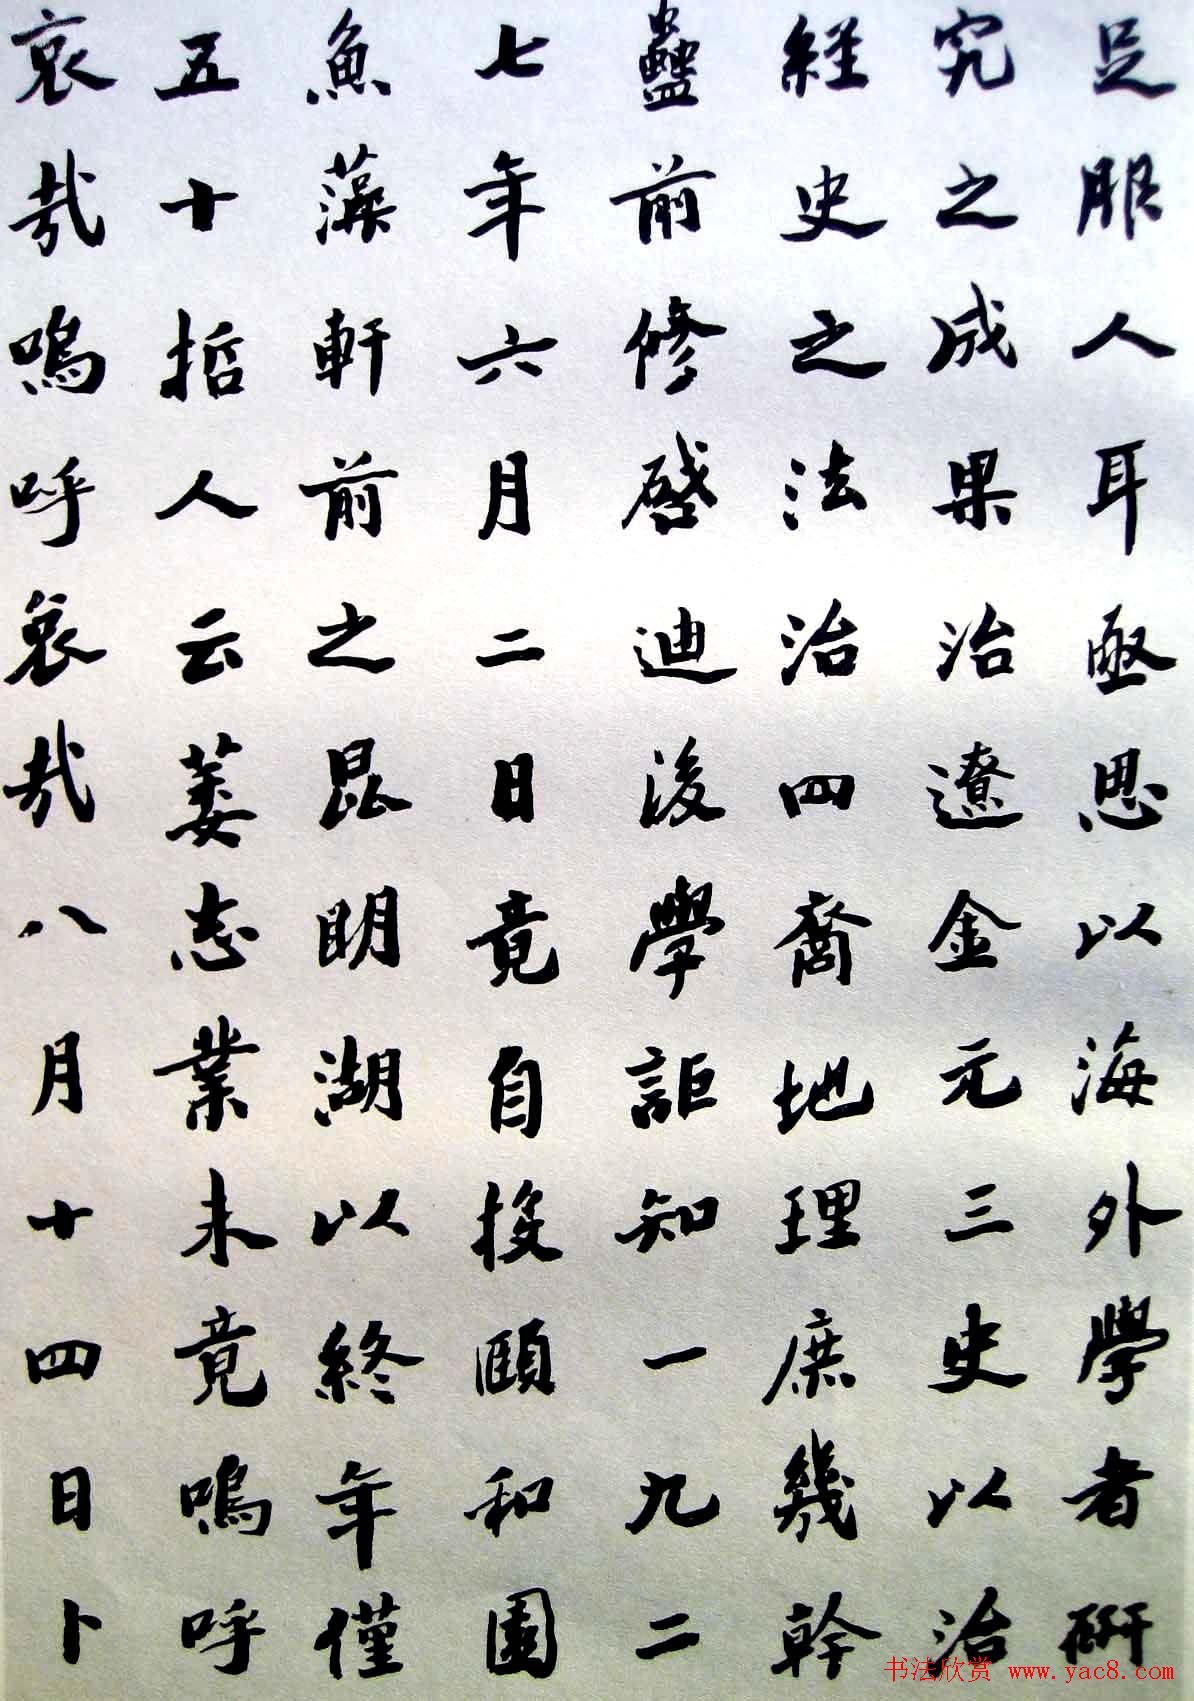 足服人耳亟思以海外學者研
究之成果治遼金元三史以治
經史之法治四裔地理庶幾幹
蠱前修啓迪後學詎知一九二
七年六月二日竟自投頤和園
魚藻軒前之昆明湖以終年僅
五十哲人云萎志業未竟嗚呼
哀哉嗚呼哀哉八月十四日卜
书法欣赏 www.yac8.com